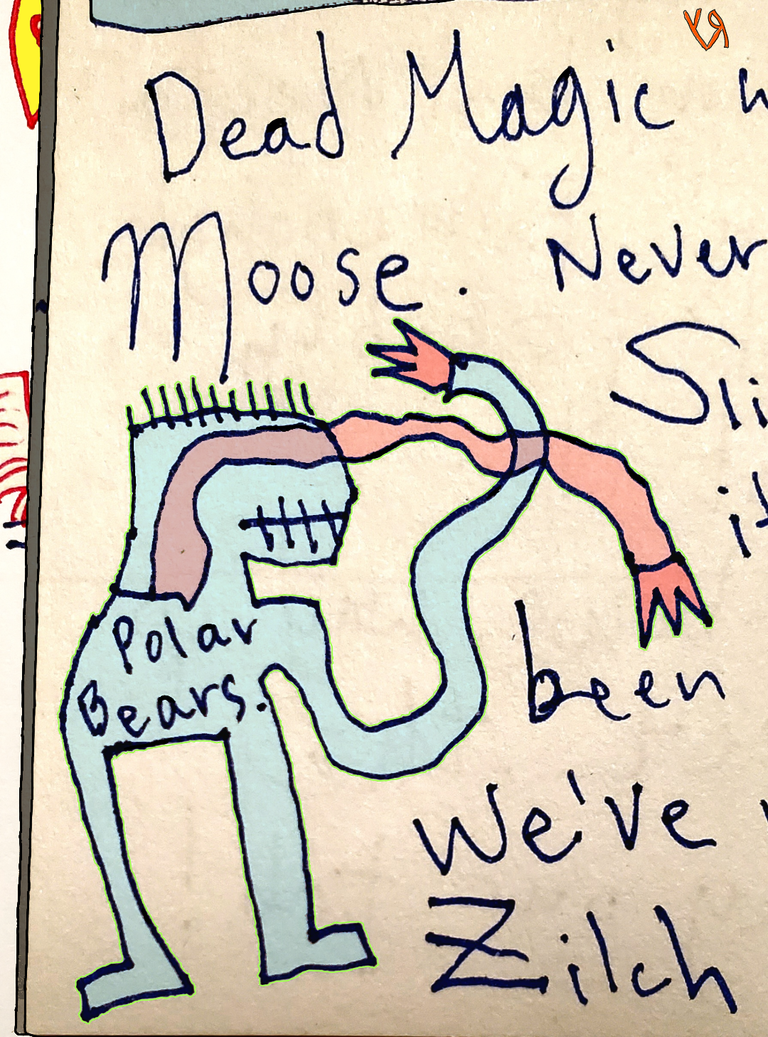 Dead Magic
Moose. Never
Polar
Bears.
been
We've
Zilch